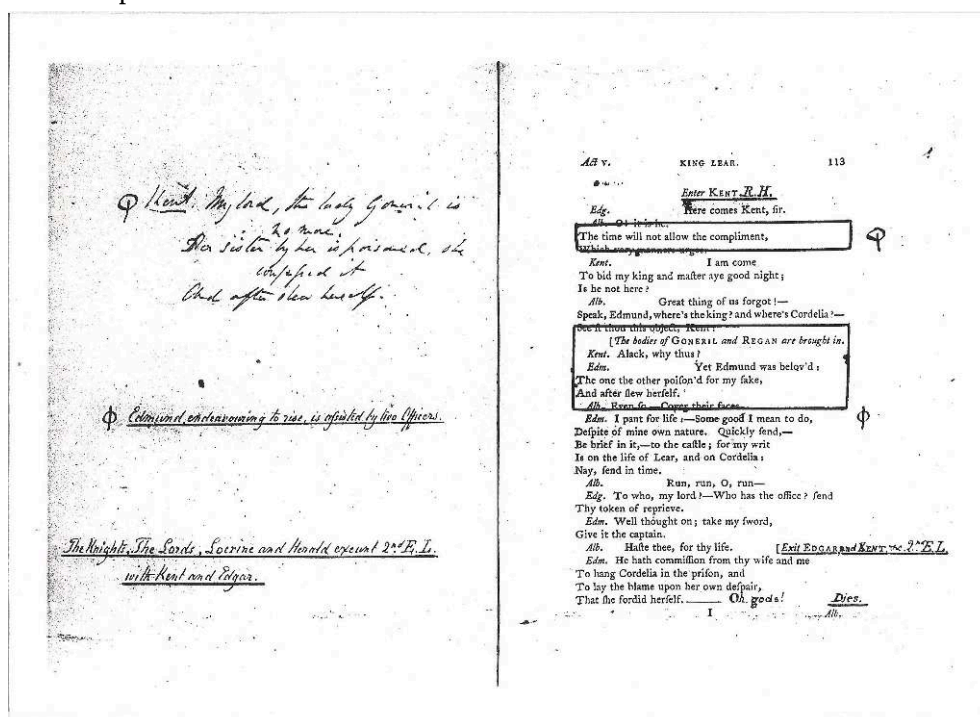 Kent. My lord, the lady Goneril is
no more.
Her sister by her is poisoned, she
confessed it
And after slew herself.
Edmund, endeavouring to rise, is assisted by two Officers.
The Knights, The Lords, Locrine and Herald exeunt 2nd E. L.
with Kent and Edgar.
Act V. KING LEAR. 113
Enter KENT, R. H.
Edg. Here comes Kent, ſir.
Alb. O! it is he.
The time will not allow the compliment,
Which very manners urges.
Kent. I am come
To bid my king and maſter aye good night;
Is he not here?
Alb. Great thing of us forgot!—
Speak, Edmund, where's the king? and where's Cordelia?—
See'ſt thou this object, Kent?
[The bodies of GONERIL and REGAN are brought in.
Kent. Alack, why thus?
Edm. Yet Edmund was belov'd:
The one the other poiſon'd for my ſake,
And after ſlew herſelf.
Alb. Even ſo.—Cover their faces.
Edm. I pant for life:—Some good I mean to do,
Deſpite of mine own nature. Quickly ſend,—
Be brief in it,—to the caſtle; for my writ
Is on the life of Lear, and on Cordelia:
Nay, ſend in time.
Alb. Run, run, O, run—
Edg. To who, my lord?—Who has the office? ſend
Thy token of reprieve.
Edm. Well thought on; take my ſword,
Give it the captain.
Alb. Haſte thee, for thy life. [Exit EDGAR and KENT, &c. 2nd E. L.
Edm. He hath commiſſion from thy wife and me
To hang Cordelia in the priſon, and
To lay the blame upon her own deſpair,
That ſhe fordid herſelf. Oh gods! Dies.
I Alb.